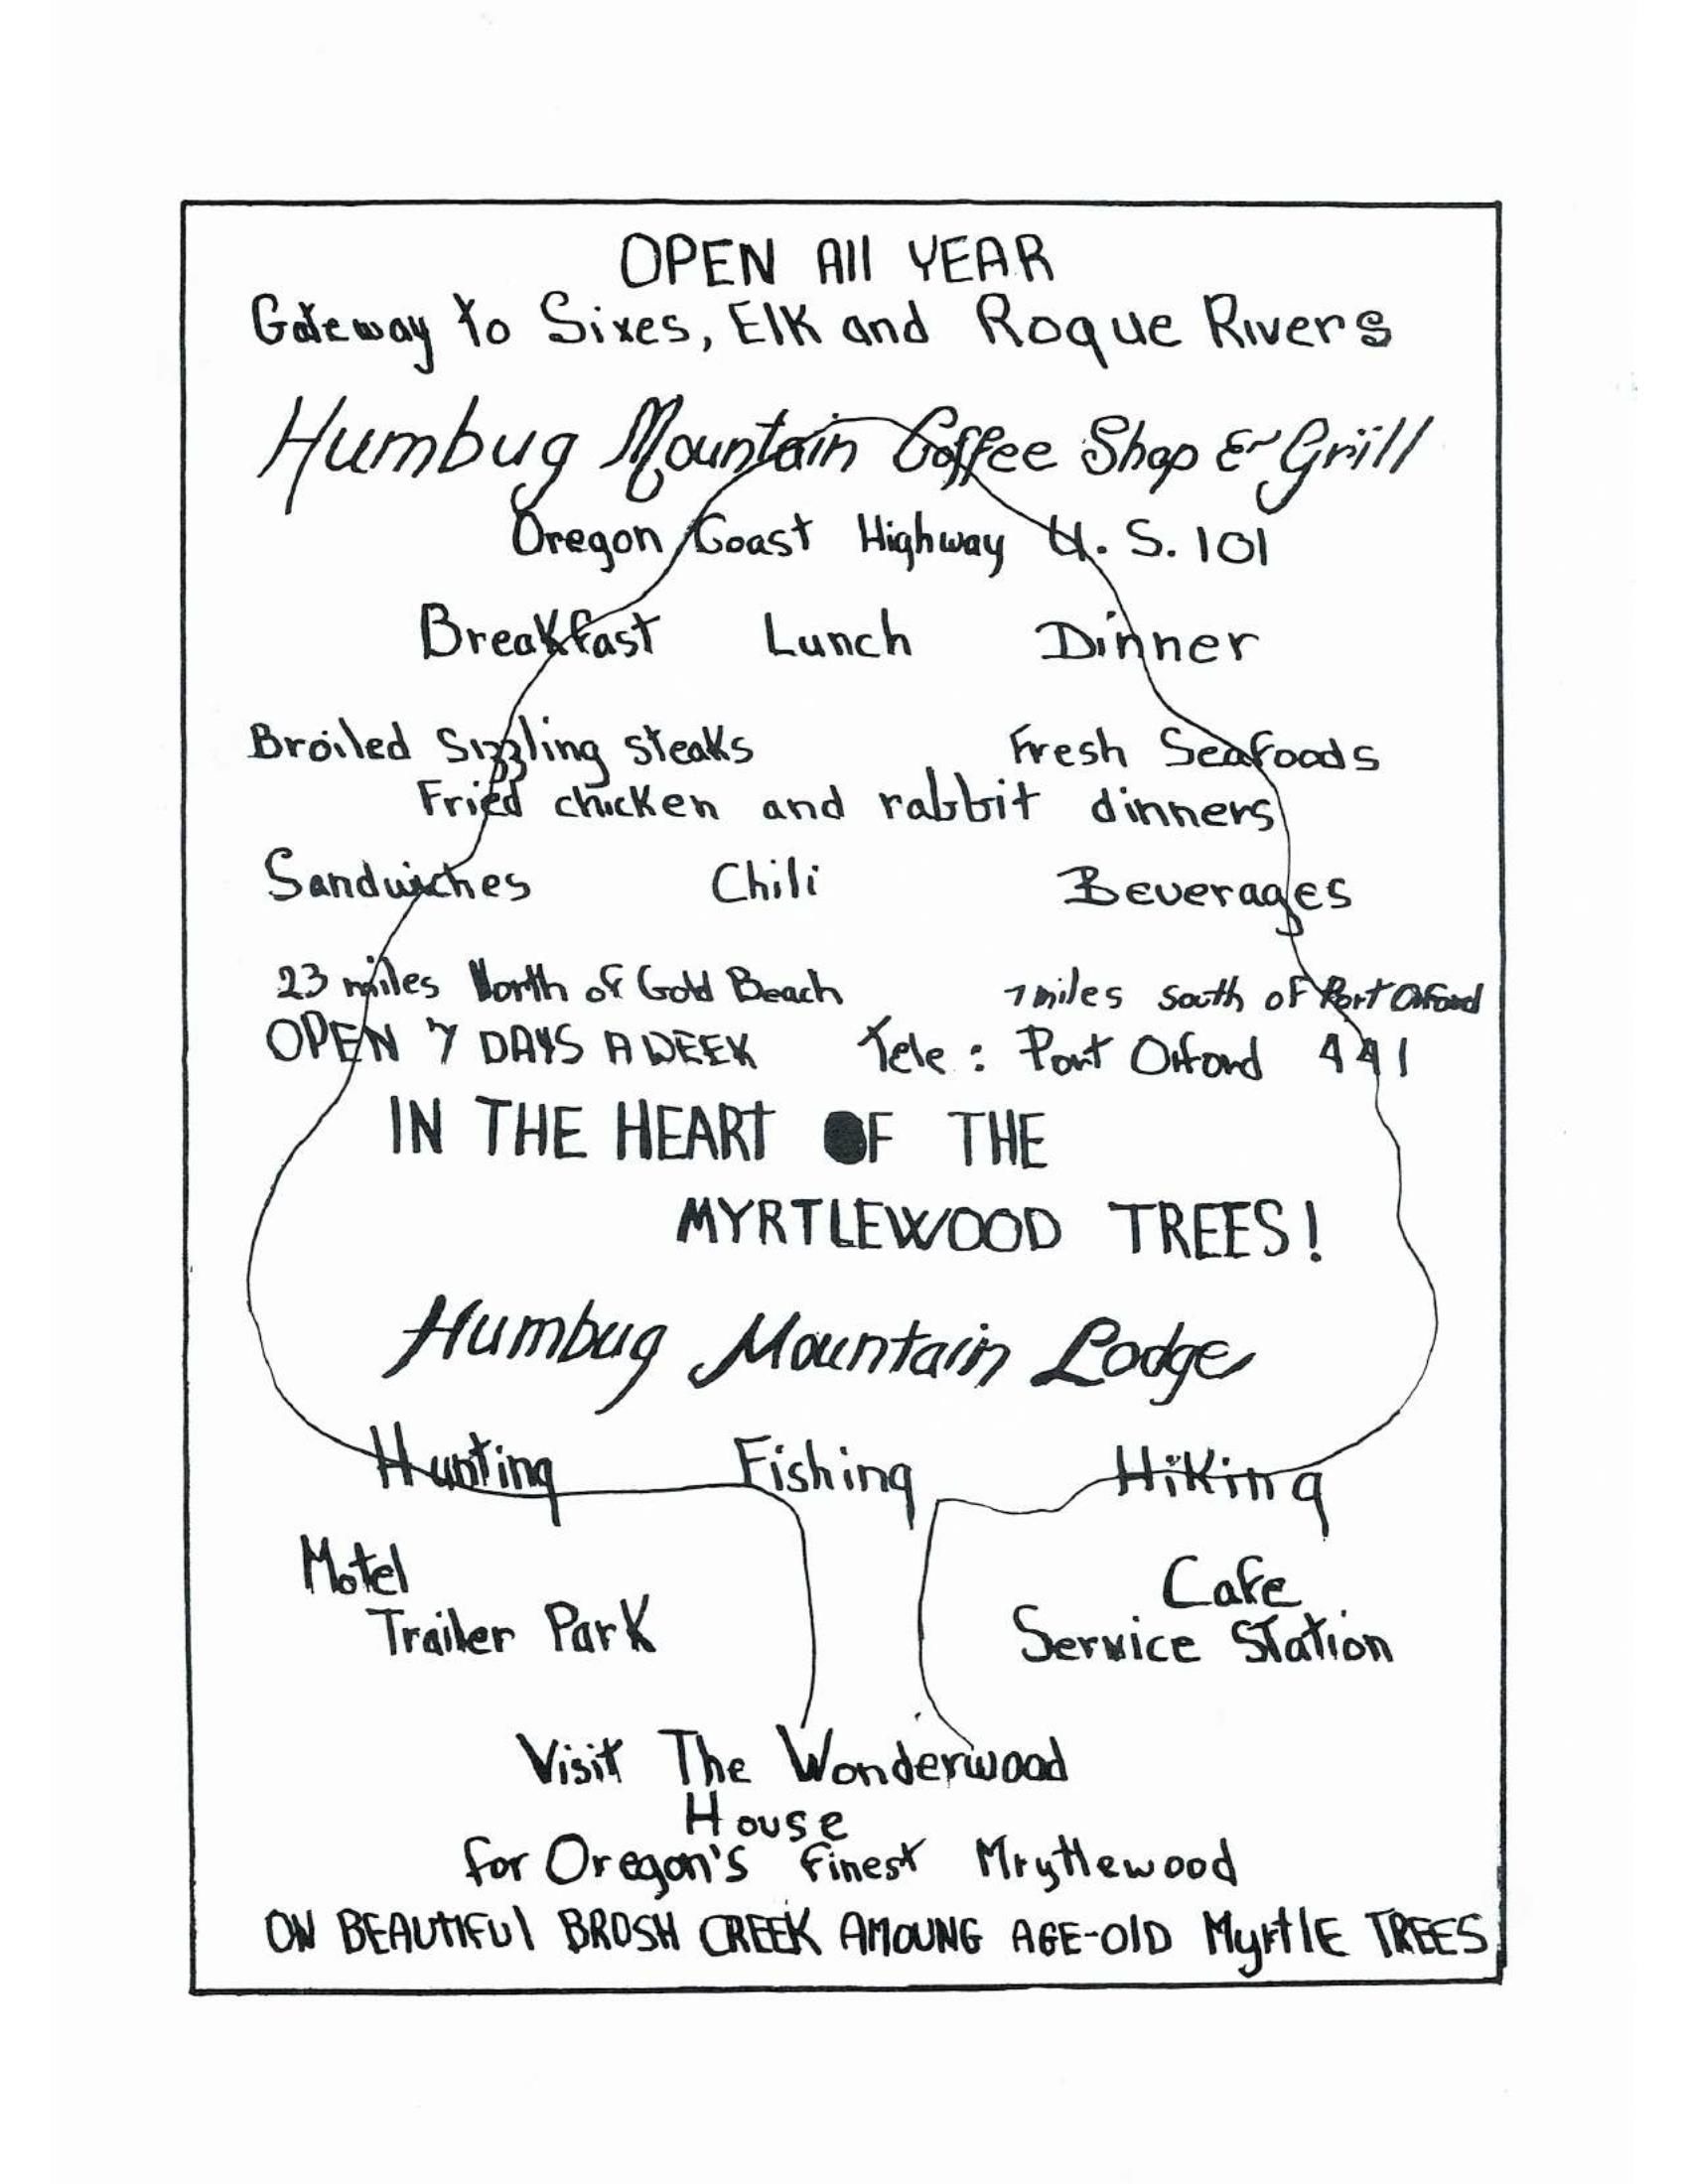 OPEN All YEAR
Gateway to Sixes, Elk and Roque Rivers
Humbug Mountain Coffee Shop & Grill
Oregon Coast Highway U. S. 101
Breakfast Lunch Dinner
Broiled Sizzling steaks Fresh Seafoods
Fried chicken and rabbit dinners
Sandwiches Chili Beverages
23 miles North of Gold Beach 7 miles south of Port Orford
OPEN 7 DAYS A WEEK Tele : Port Orford 441
IN THE HEART OF THE
MYRTLEWOOD TREES!
Humbug Mountain Lodge
Hunting Fishing Hiking
Motel Cafe
Trailer Park Service Station
Visit The Wonderwood
House
for Oregon's finest Mrytlewood
ON BEAUTIFUl BRUSH CREEK AMOUNG AGE-OlD MyrtlE TREES